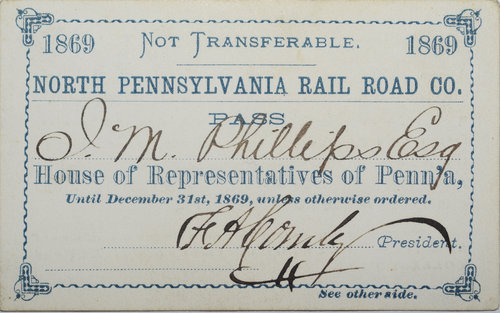 1869 NOT TRANSFERABLE. 1869
NORTH PENNSYLVANIA RAIL ROAD CO.
PASS
J. M. Phillips Esq
House of Representatives of Penn'a,
Until December 31st, 1869, unless otherwise ordered.
F A Comly President.
See other side.